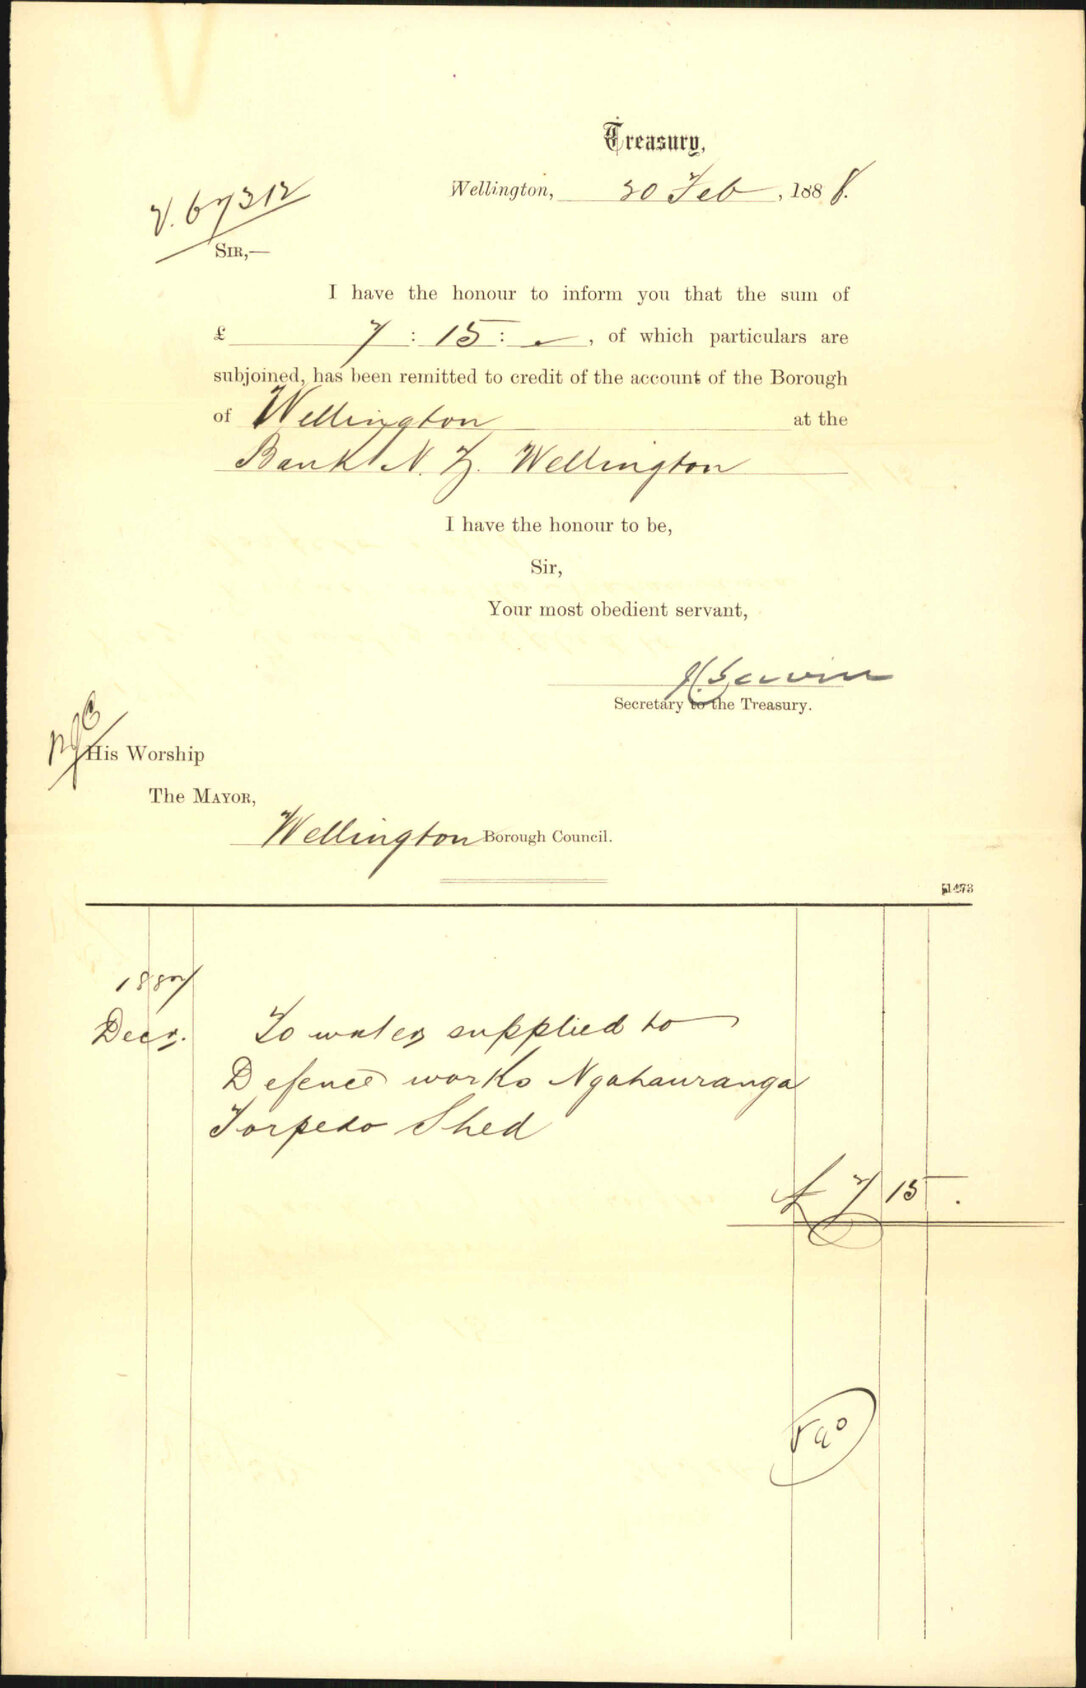 Treasury,
Wellington, 20 Feb, 1888.
V. 67312
SIR,—
I have the honour to inform you that the sum of
£ 7 : 15 : - , of which particulars are
subjoined, has been remitted to credit of the account of the Borough
of Wellington at the
Bank N. Z. Wellington
I have the honour to be,
Sir,
Your most obedient servant,
Secretary to the Treasury.
His Worship
The MAYOR,
Wellington Borough Council.
1273
1887
Decr. To water supplied to
Defence works Ngahauranga
Torpedo Shed
£ 7 15 .